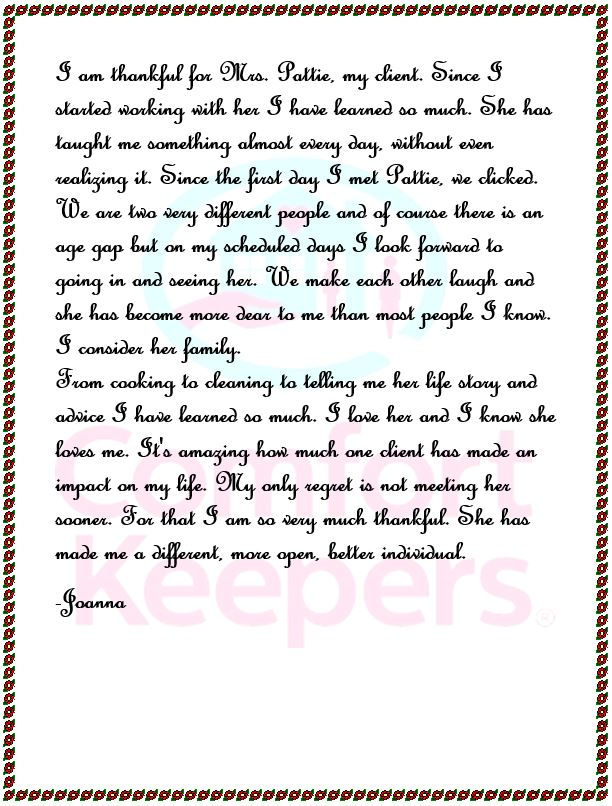 I am thankful for Mrs. Pattie, my client. Since I
started working with her I have learned so much. She has
taught me something almost every day, without even
realizing it. Since the first day I met Pattie, we clicked.
We are two very different people and of course there is an
age gap but on my scheduled days I look forward to
going in and seeing her. We make each other laugh and
she has become more dear to me than most people I know.
I consider her family.
From cooking to cleaning to telling me her life story and
advice I have learned so much. I love her and I know she
loves me. It's amazing how much one client has made an
impact on my life. My only regret is not meeting her
sooner. For that I am so very much thankful. She has
made me a different, more open, better individual.
-Joanna
Comfort
Keepers®